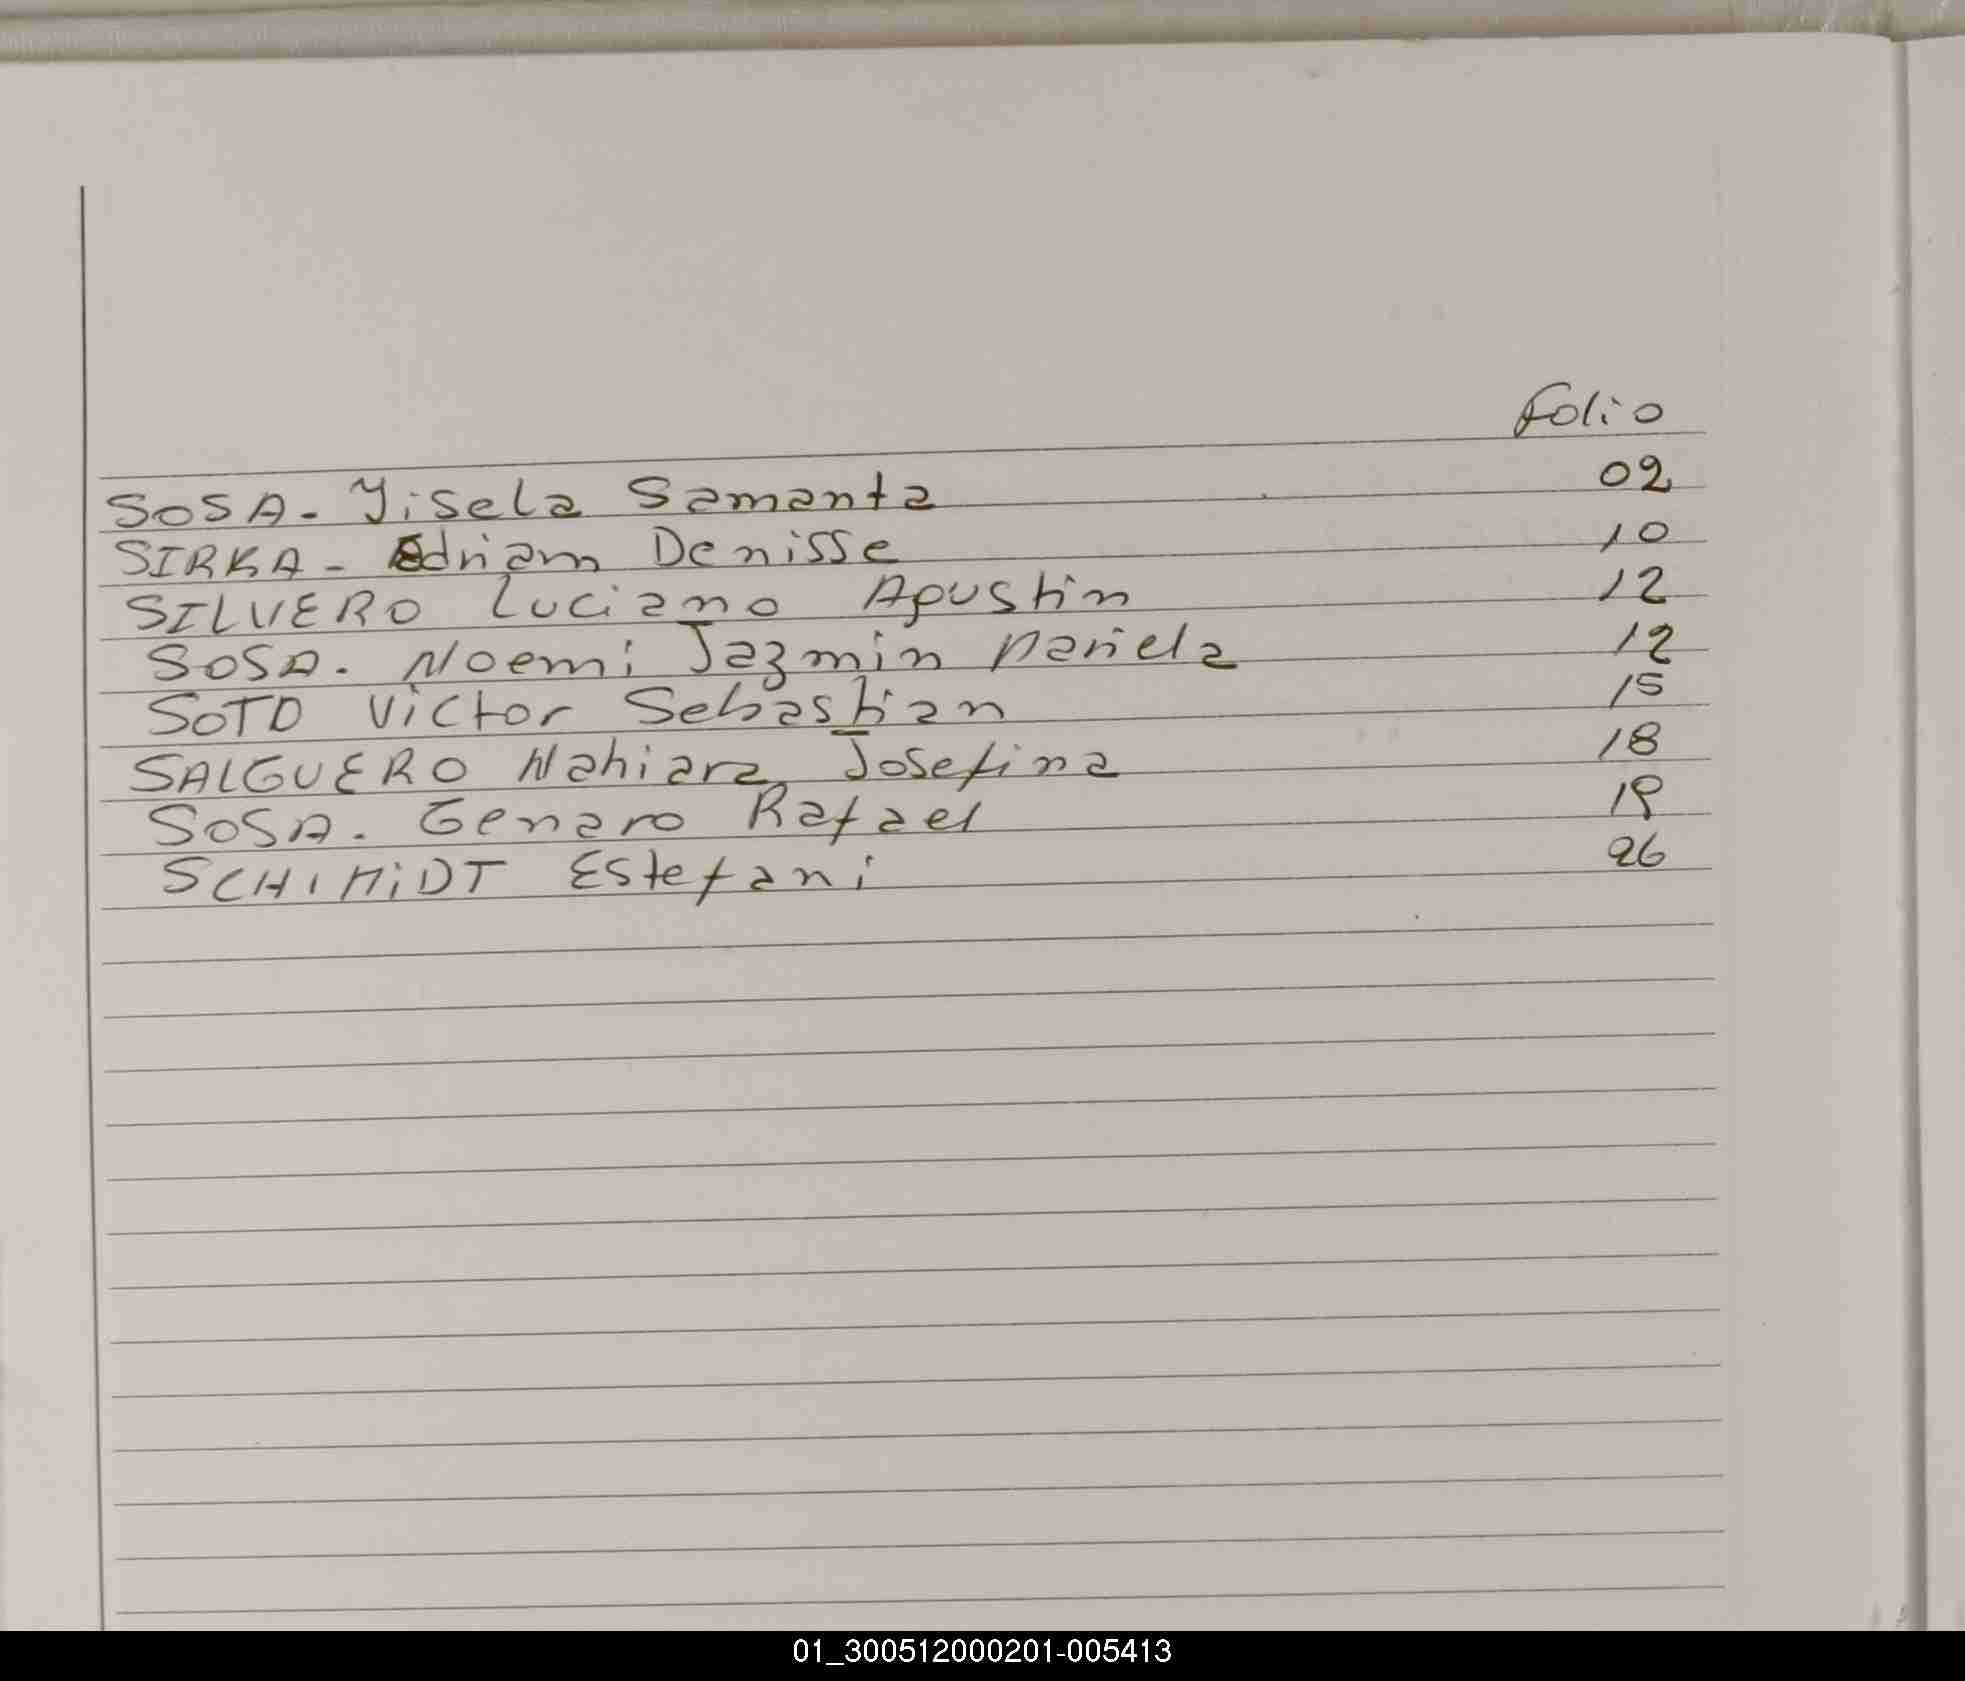 Folio
SOSA. Yisela Samanta 02
SIRKA - Edriam Denisse 10
SILVERO Luciano Agustin 12
SOSA. Noemi Jazmin Mariela 12
SOTO Victor Sebastian 15
SALGUERO Nahiara Josefina 18
SOSA. Genaro Rafael 19
SCHIMIDT Estefani 26
01_300512000201-005413